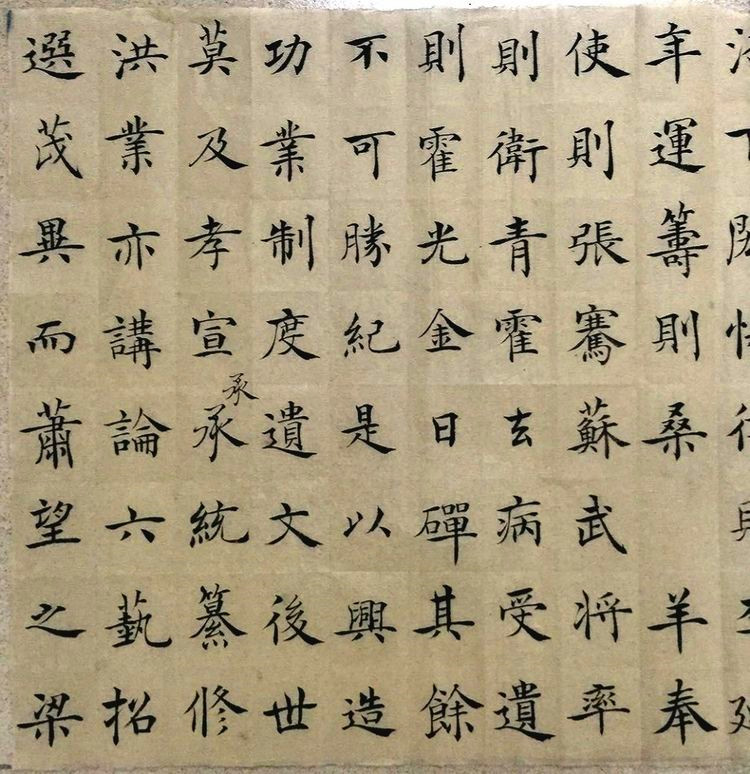 年運籌則桑羊奉
使則張騫蘇武将率
則衛青霍去病受遺
則霍光金日磾其餘
不可勝紀是以興造
功業制度遺文後世
莫及孝宣承統纂修
承
洪業亦講論六藝招
選茂異而蕭望之梁